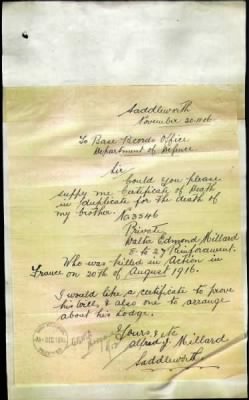 Saddleworth
November 20. 1916
To Base Records Office
Department of Defence
Sir
Could you please
supply me Certificate of Death
in duplicate for the death of
my brother No 3546
Private
Walter Edmond Millard
8 to 27 Reinforcement.
Who was killed in Action in
France on 20th of August 1916.
I would like a certificate to prove
his will, & also one to arrange
about his Lodge.
Yours etc
Alfred J Millard
Saddleworth